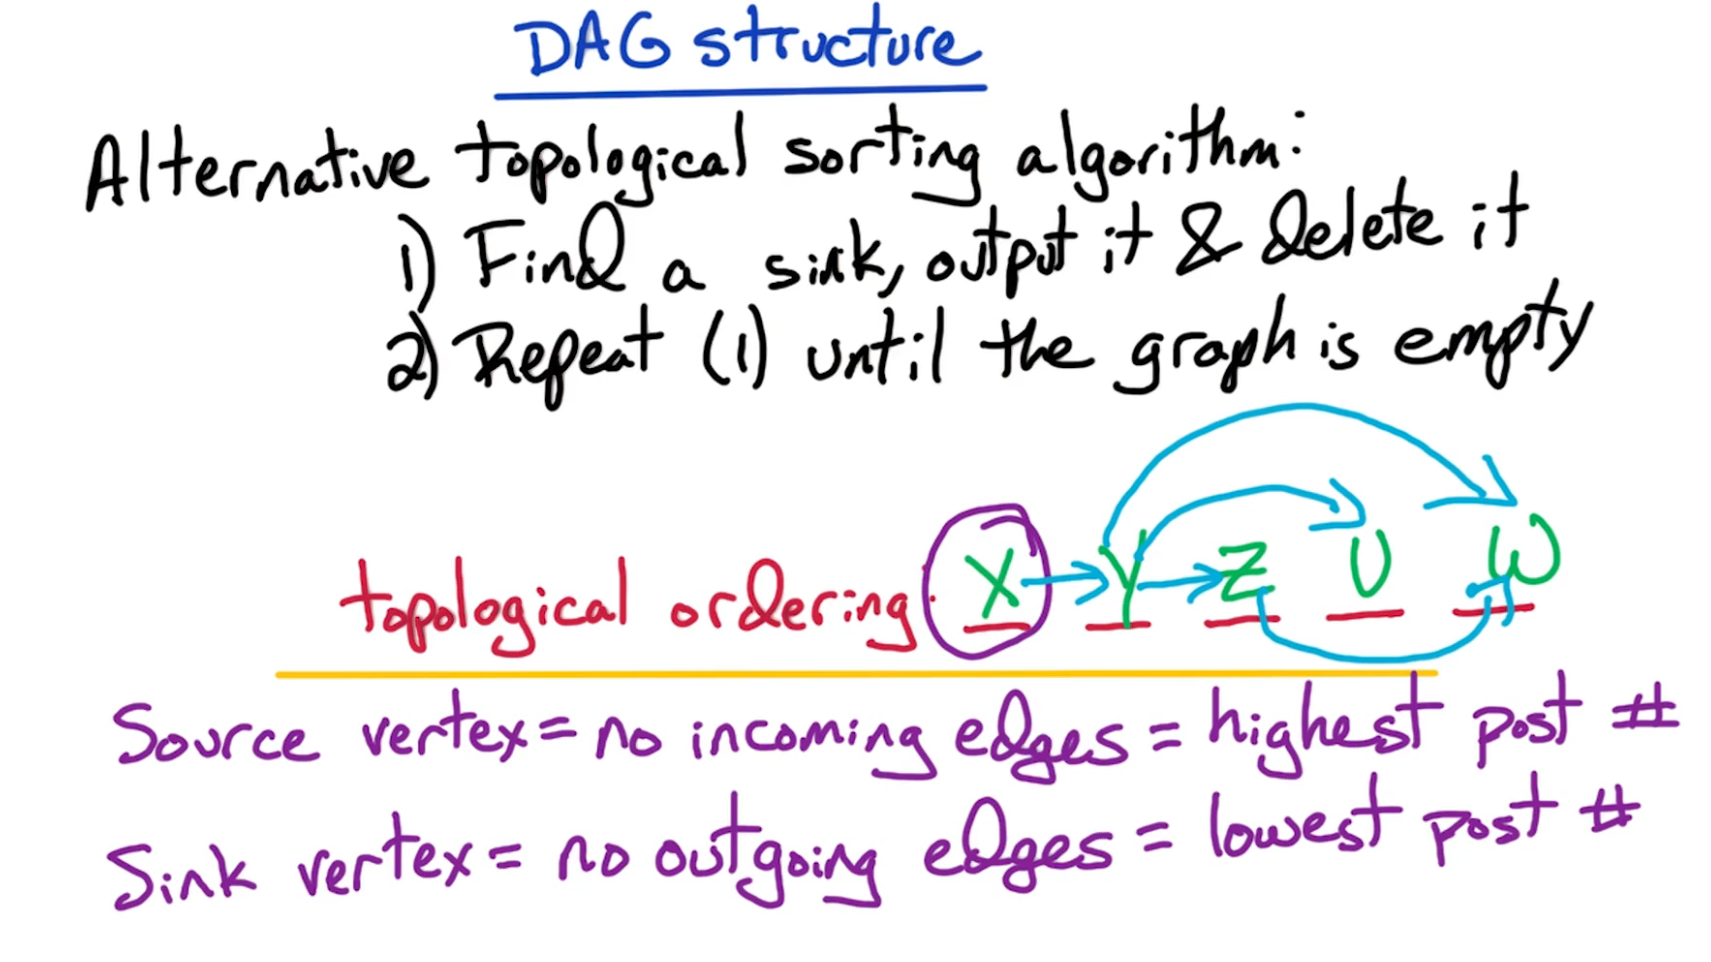 DAG structure
Alternative topological sorting algorithm:
1) Find a sink, output it & delete it
2) Repeat (1) until the graph is empty
topological ordering: X Y Z U W
Source vertex = no incoming edges = highest post #
Sink vertex = no outgoing edges = lowest post #